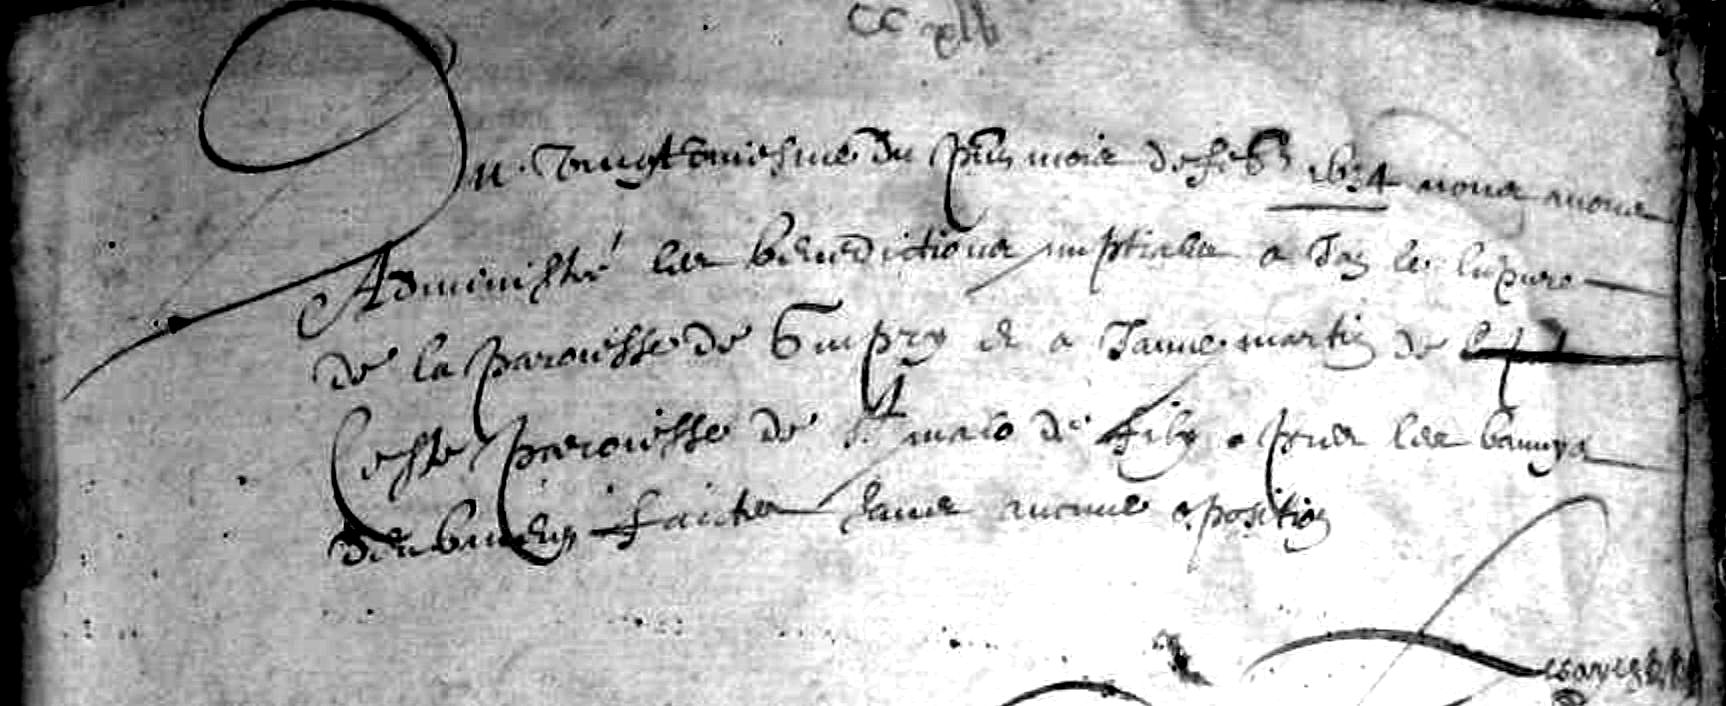 Du vingt troiesme du pnt mois de feb 1634 nous avons
Administré les benedictions nuptiales a Jan le
de la paroisse de Guipry et a Janne martin de
Ceste paroisse de St malo de fily apres les bannys
deubment faictes sans aucune oposition